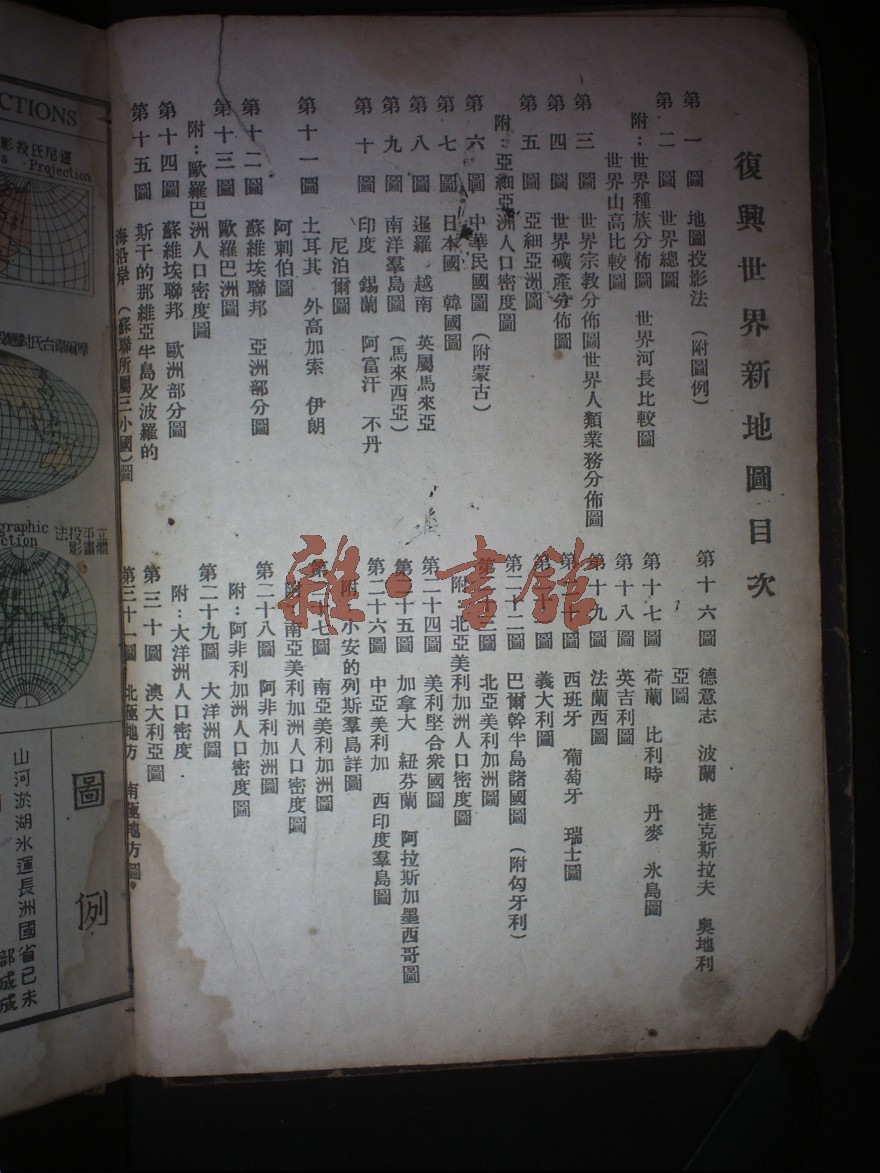 復興世界新地圖目次
第一圖 地圖投影法 (附圖例)
第二圖 世界總圖
附:世界種族分佈圖 世界河長比較圖
世界山高比較圖
第三圖 世界宗教分佈圖世界人類業務分佈圖
第四圖 世界礦產分佈圖
第五圖 亞細亞洲圖
附:亞細亞洲人口密度圖
第六圖 中華民國圖 (附蒙古)
第七圖 日本國 韓國圖
第八圖 暹羅 越南 英屬馬來亞
第九圖 南洋羣島圖 (馬來西亞)
第十圖 印度 錫蘭 阿富汗 不丹
尼泊爾圖
第十一圖 土耳其 外高加索 伊朗
阿刺伯圖
第十二圖 蘇維埃聯邦 亞洲部分圖
第十三圖 歐羅巴洲圖
附:歐羅巴洲人口密度圖
第十四圖 蘇維埃聯邦 歐洲部分圖
第十五圖 斯干的那維亞半島及波羅的
海沿岸 (蘇聯所屬三小國) 圖
第十六圖 德意志 波蘭 捷克斯拉夫 奧地利
亞圖
第十七圖 荷蘭 比利時 丹麥 氷島圖
第十八圖 英吉利圖
第十九圖 法蘭西圖
第二十圖 西班牙 葡萄牙 瑞士圖
義大利圖
第二十二圖 巴爾幹半島諸國圖 (附匈牙利)
北亞美利加洲圖
附:北亞美利加洲人口密度圖
第二十四圖 美利堅合衆國圖
第二十五圖 加拿大 紐芬蘭 阿拉斯加墨西哥圖
第二十六圖 中亞美利加 西印度羣島圖
附:小安的列斯羣島詳圖
第二十七圖 南亞美利加洲圖
附:南亞美利加洲人口密度圖
第二十八圖 阿非利加洲圖
附:阿非利加洲人口密度圖
第二十九圖 大洋洲圖
附:大洋洲人口密度
第三十圖 澳大利亞圖
第三十一圖 北極地方 南極地方圖
雜·書館
CTIONS
運尼氏投影
s Projection
graphic
ction
立體平畫投影法
圖例
山河淤湖氷運長洲國省已未
部成成